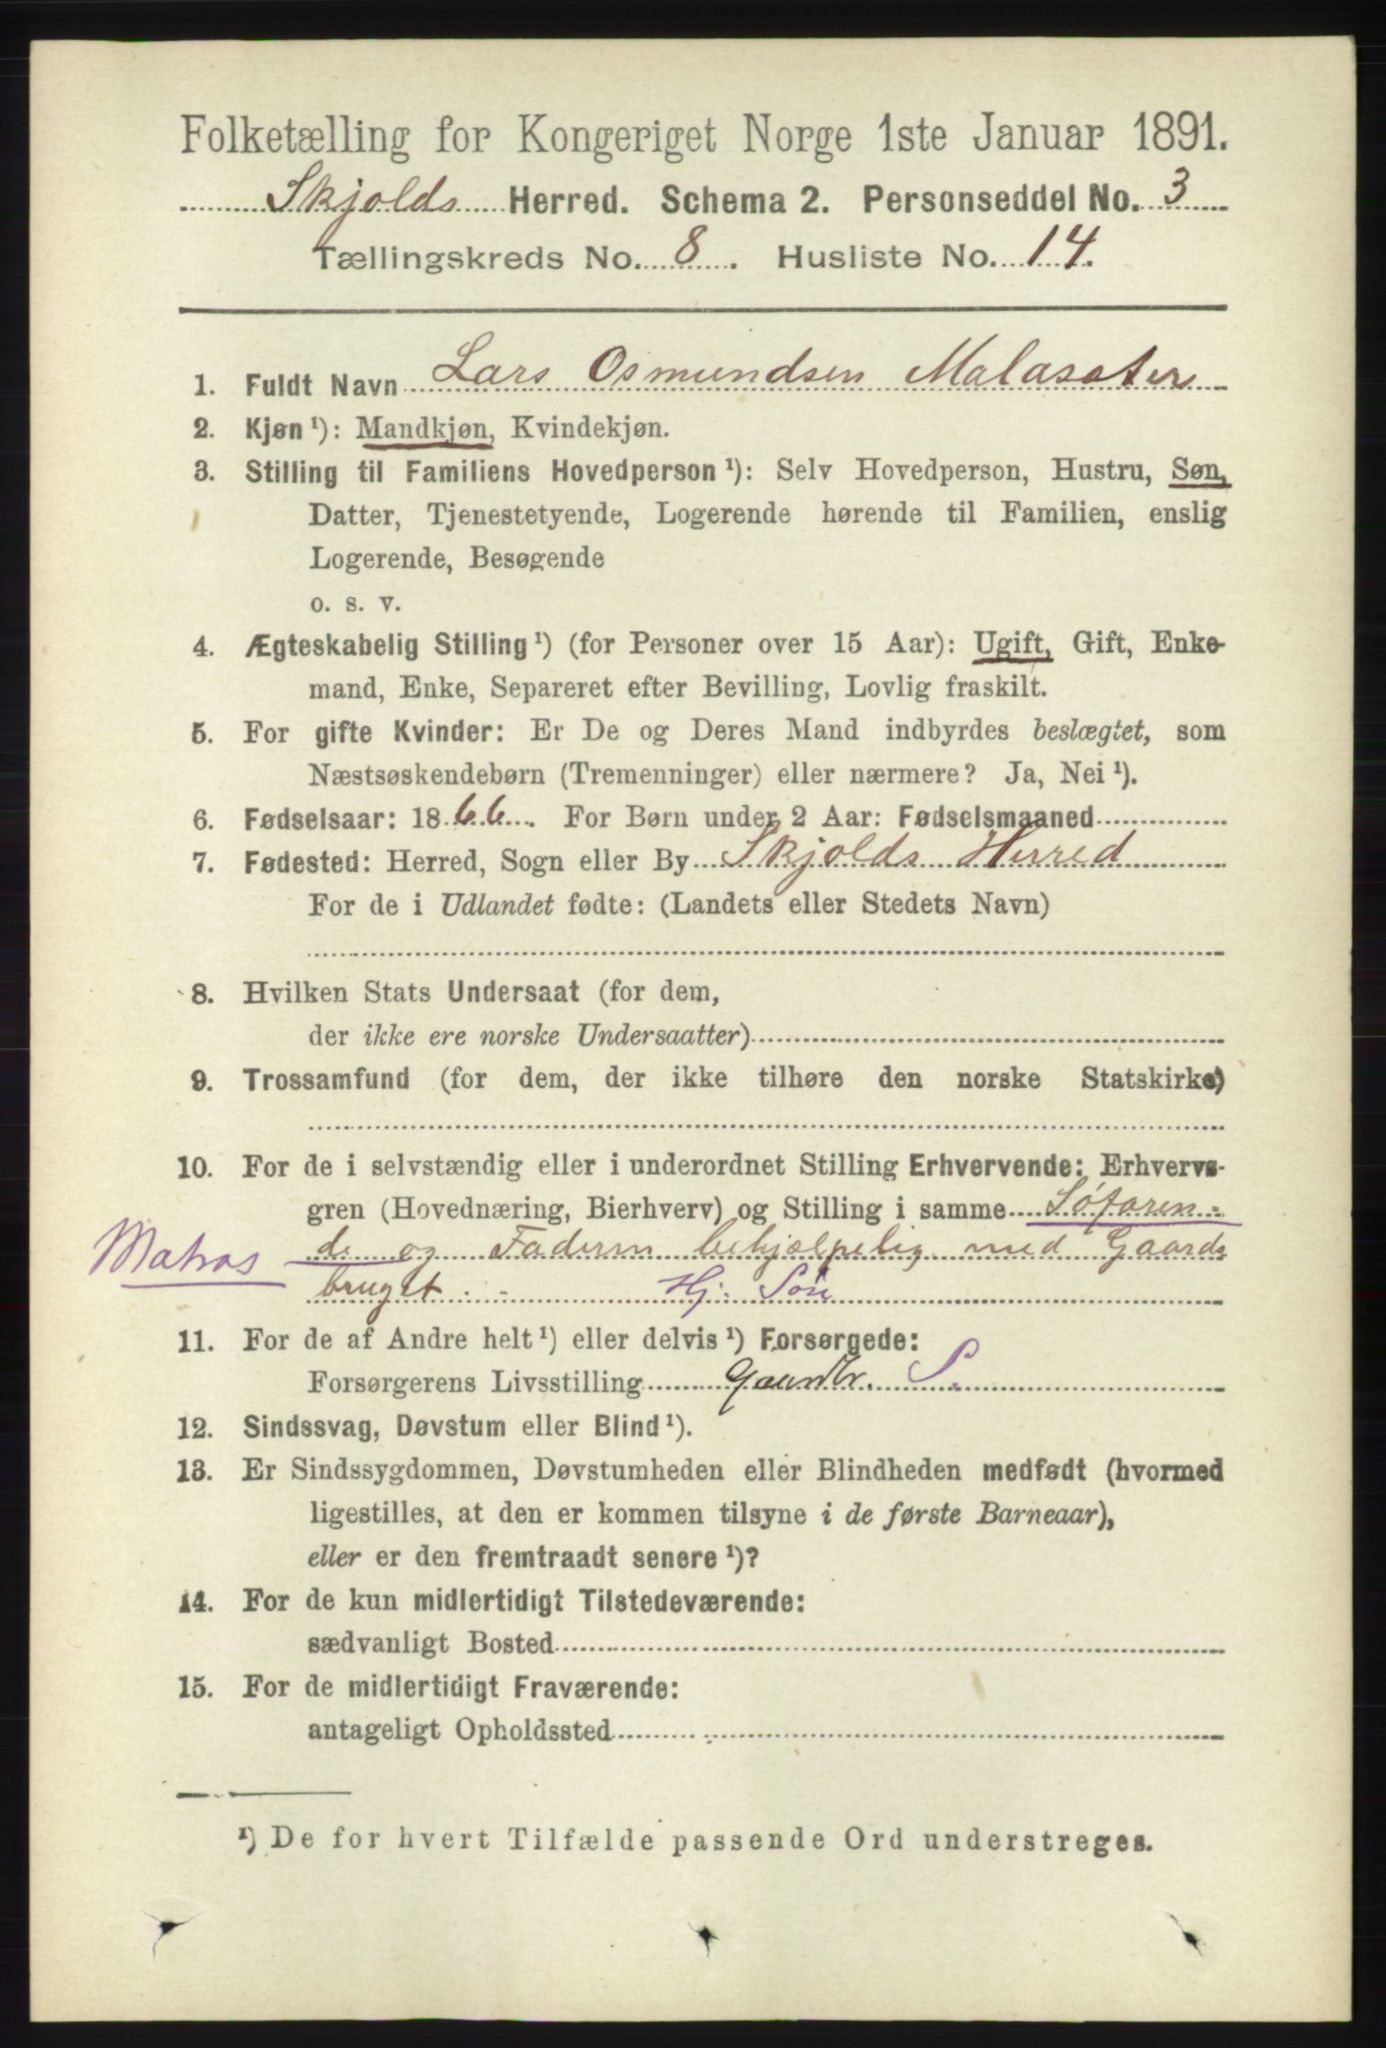 Folketælling for Kongeriget Norge 1ste Januar 1891.
Skjolds Herred. Schema 2. Personseddel No. 3
Tællingskreds No. 8. Husliste No. 14.
1. Fuldt Navn Lars Osmundsen Malasater
2. Kjøn ¹): Mandkjøn, Kvindekjøn.
3. Stilling til Familiens Hovedperson ¹): Selv Hovedperson, Hustru, Søn,
Datter, Tjenestetyende, Logerende hørende til Familien, enslig
Logerende, Besøgende
o. s. v.
4. Ægteskabelig Stilling ¹) (for Personer over 15 Aar): Ugift, Gift, Enke-
mand, Enke, Separeret efter Bevilling, Lovlig fraskilt.
5. For gifte Kvinder: Er De og Deres Mand indbyrdes beslægtet, som
Næstsøskendebørn (Tremenninger) eller nærmere? Ja, Nei ¹).
6. Fødselsaar: 1866. For Børn under 2 Aar: Fødselsmaaned
7. Fødested: Herred, Sogn eller By Skjolds Herred
For de i Udlandet fødte: (Landets eller Stedets Navn)
8. Hvilken Stats Undersaat (for dem,
der ikke ere norske Undersaatter)
9. Trossamfund (for dem, der ikke tilhøre den norske Statskirke)
10. For de i selvstændig eller i underordnet Stilling Erhvervende: Erhvervs-
gren (Hovednæring, Bierhverv) og Stilling i samme Søfaren-
Matros de og Faderen behjælpelig med Gaards
bruget. Hj. Søn
11. For de af Andre helt ¹) eller delvis ¹) Forsørgede:
Forsørgerens Livsstilling Gaardbr. S.
12. Sindssvag, Døvstum eller Blind ¹).
13. Er Sindssygdommen, Døvstumheden eller Blindheden medfødt (hvormed
ligestilles, at den er kommen tilsyne i de første Barneaar),
eller er den fremtraadt senere ¹)?
14. For de kun midlertidigt Tilstedeværende:
sædvanligt Bosted
15. For de midlertidigt Fraværende:
antageligt Opholdssted
¹) De for hvert Tilfælde passende Ord understreges.